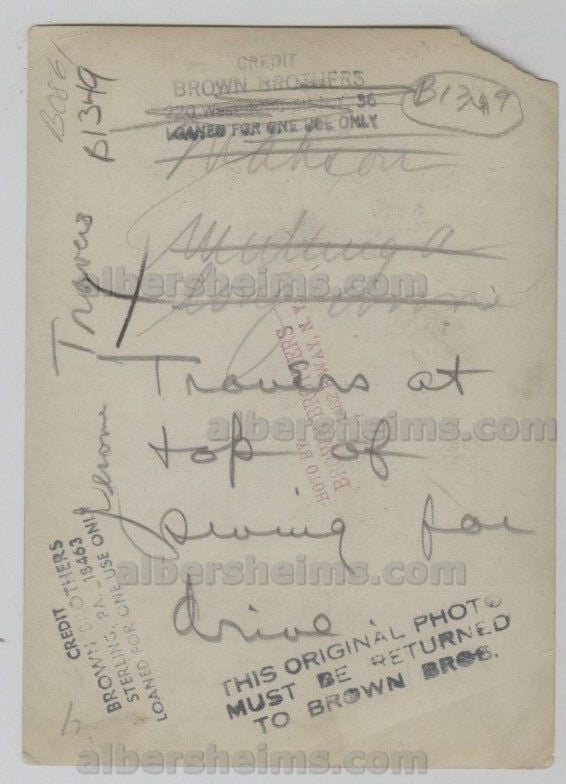 CREDIT
BROWN BROTHERS
LOANED FOR ONE USE ONLY
B1349
B1349
albersheims.com
Travers at
top of
swing for
drive.
albersheims.com
albersheims.com
albersheims.com
Jerome Travers
PHOTO BY
BROWN BROTHERS
B'WAY, N.Y.
CREDIT
BROWN BROTHERS
STERLING, PA. 18463
LOANED FOR ONE USE ONLY
THIS ORIGINAL PHOTO
MUST BE RETURNED
TO BROWN BROS.